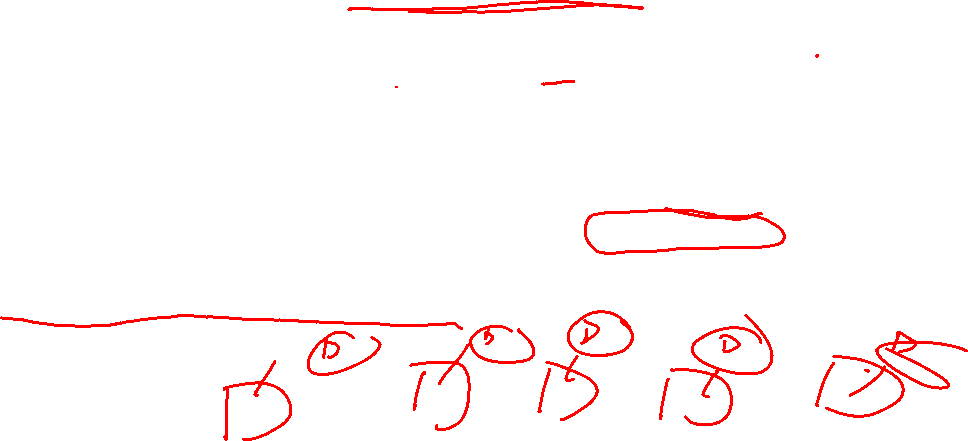 D D D D D
D D D D D